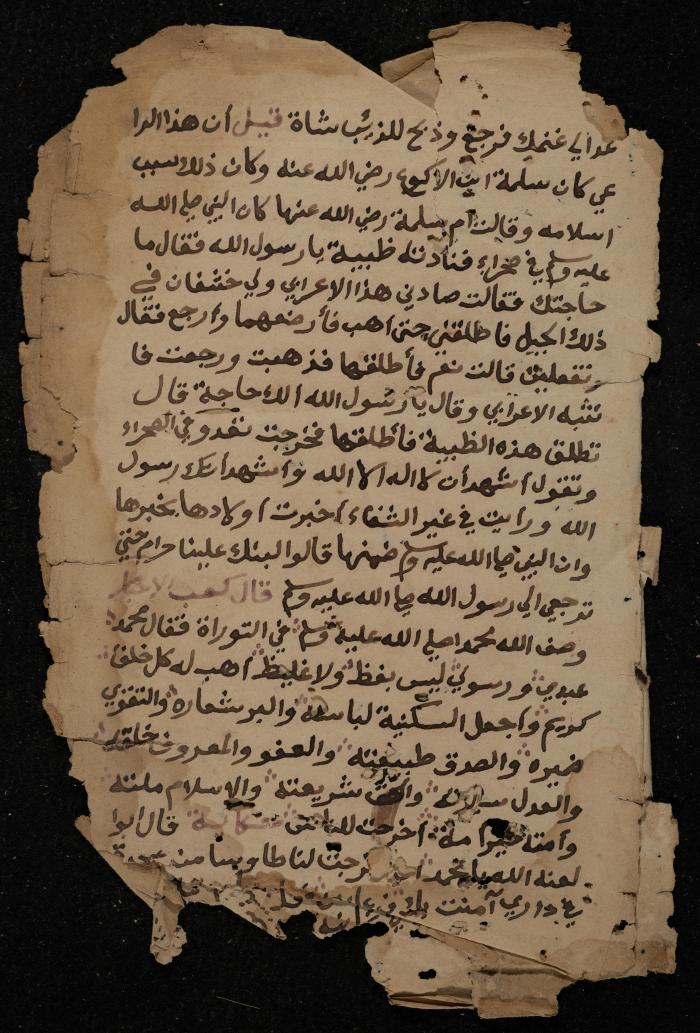 عد الي غنمك فرجع وذبح للذئب شاة قيل أن هذا الرا
عي كان سلمة ابن الاكوع رضي الله عنه وكان ذلك سبب
اسلامه وقالت ام سلمة رضي الله عنها كان النبي صلى الله
عليه وسلم في صحراء فنادته ظبية يا رسول الله فقال ما
حاجتك فقالت صادني هذا الاعرابي ولي خشفان في
ذلك الجبل فاطلقني حتى اهب فأرضعهما وارجع فقال
وتفعلين قالت نعم فأطلقها فذهبت ورجعت فا
نتبه الاعرابي وقال يا رسول الله الك حاجة قال
تطلق هذه الظبية فأطلقها فخرجت تعدو في الصحراء
وتقول اشهد أن لا اله الا الله وأشهد أنك رسول
الله ورأيت في غير الشفاء اخبرت اولادها بخبرها
وان النبي صلى الله عليه وسلم ضمنها قالوا لبنك علينا حرام حتي
ترجعي الي رسول الله صلى الله عليه وسلم قال كعب الاحبار
وصف الله محمدا صلي الله عليه وسلم في التوراة فقال محمد
عبدي ورسولي ليس بفظ ولا غليظ اهب له كل خلق
كريم وأجعل السكنية لباسه والبر شعاره والتقوي
ضميره والصدق طبيعته والعفو والمعروف خلقه
والعدل سيرته والحق شريعته والاسلام ملته
وأمته خير امة اخرجت للناس قال ابوا
لعنه الله يا محمد خرجت لنا طاوسا من
في داري آمنت بك